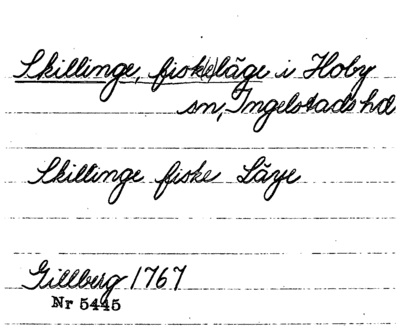 Skillinge, fisk(e)läge i Hoby
sn, Ingelstads hd
Skillinge fiske Läge
Gillberg 1767
Nr 5445